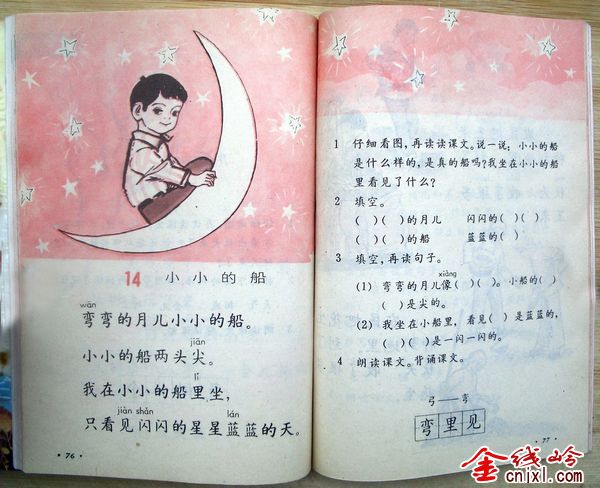 14 小小的船
wān
弯弯的月儿小小的船。
jiān
小小的船两头尖。
lǐ
我在小小的船里坐,
jiàn shǎn lán
只看见闪闪的星星蓝蓝的天。
· 76 ·
1 仔细看图,再读读课文。说一说:小小的船
是什么样的,是真的船吗?我坐在小小的船
里看见了什么?
2 填空。
( )( )的月儿 闪闪的( )( )
( )( )的船 蓝蓝的( )
3 填空,再读句子。
xiàng
(1) 弯弯的月儿像( )( )。小船的( )
( )是尖的。
(2) 我坐在小船里,看见( )是蓝蓝的,
( )( )是一闪一闪的。
4 朗读课文。背诵课文。
弓——弯
弯 里 见
· 77 ·
金线岭
cnjxl.com